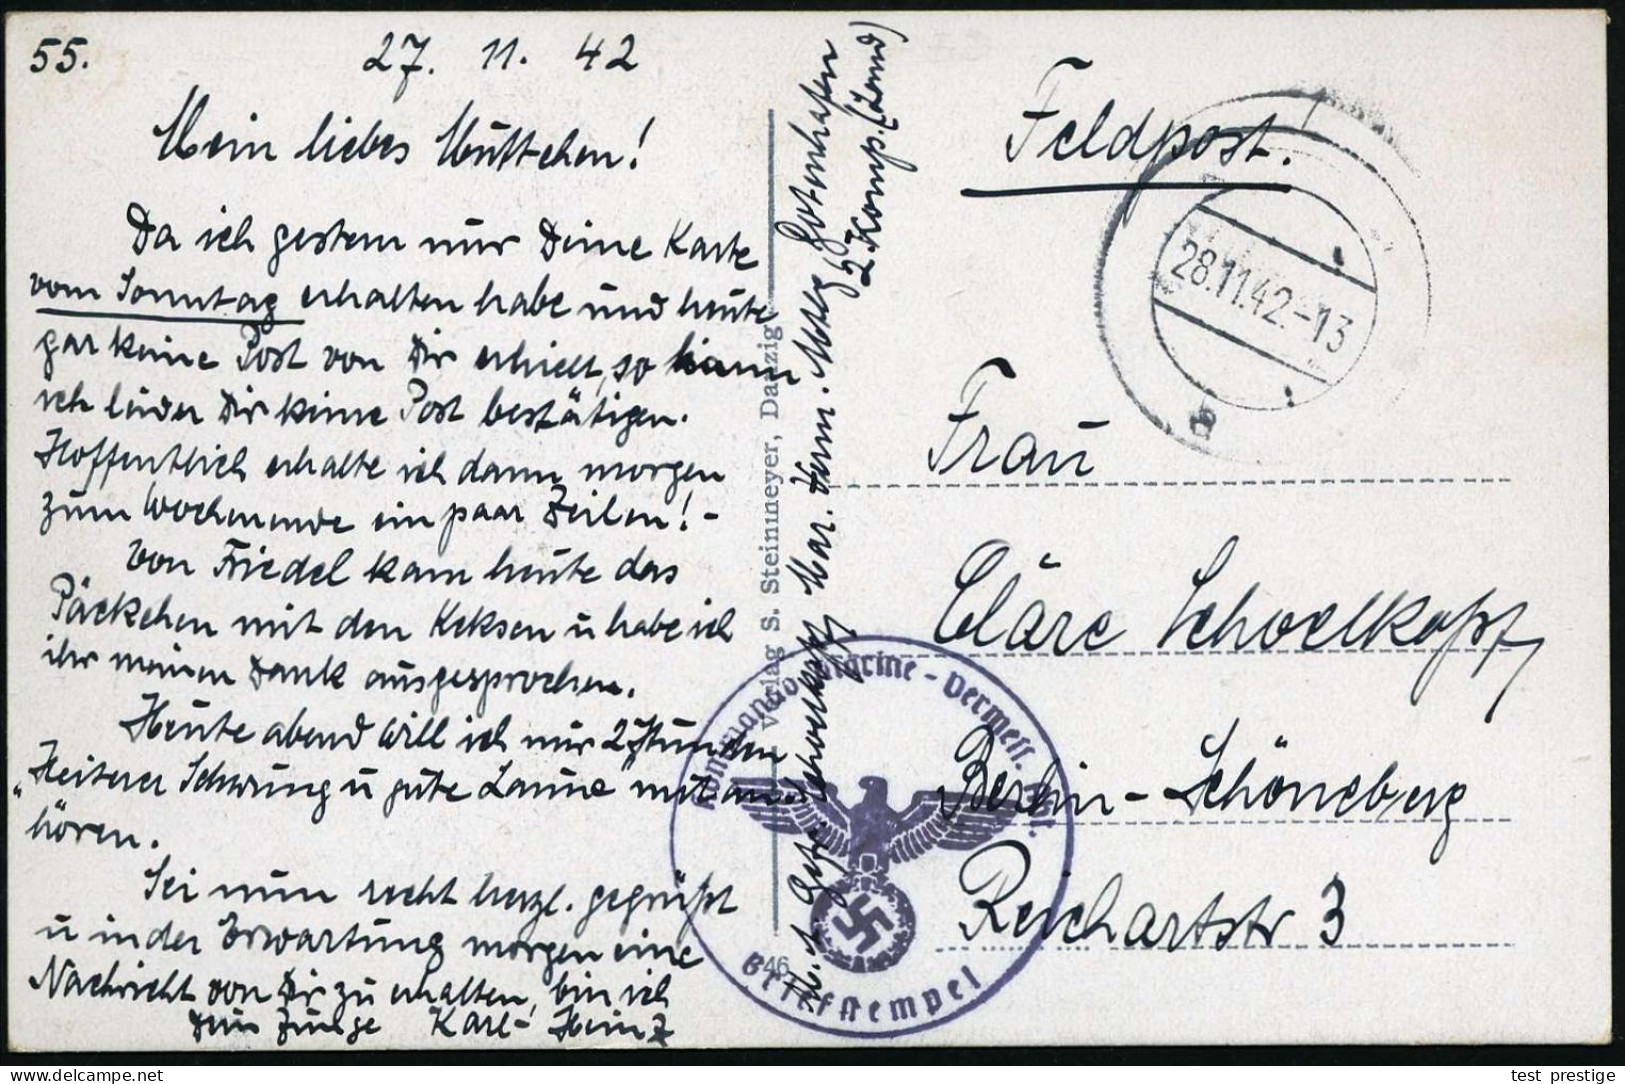 55. 27. 11. 42
Mein liebes Muttchen!
Da ich gestern nur Deine Karte
vom Sonntag erhalten habe und heute
gar keine Post von Dir erhielt, so kann
ich leider Dir keine Post bestätigen.
Hoffentlich erhalte ich dann morgen
zum Wochenende ein paar Zeilen! -
Von Friedel kam heute das
Päckchen mit den Keksen u habe ich
ihr meinen Dank ausgesprochen.
Heute abend will ich nur 2 Stunden
"Heiterer Schwung u gute Laune" mit an-
hören.
Sei nun recht herzl. gegrüßt
u in der Erwartung morgen eine
Nachricht von Dir zu erhalten, bin ich
Dein Junge Karl-Heinz
Verlag S. Steinmeyer, Danzig
46
Gefr. Schoelkopf Mar. Verm. Abtlg. Gotenhafen
2. Komp. (Land)
Feldpost!
28.11.42.-13
b
Frau
Cläre Schoelkopf
Berlin-Schöneberg
Reichartstr 3
Kommando Marine-Vermess. Abt.
Briefstempel
test_prestige